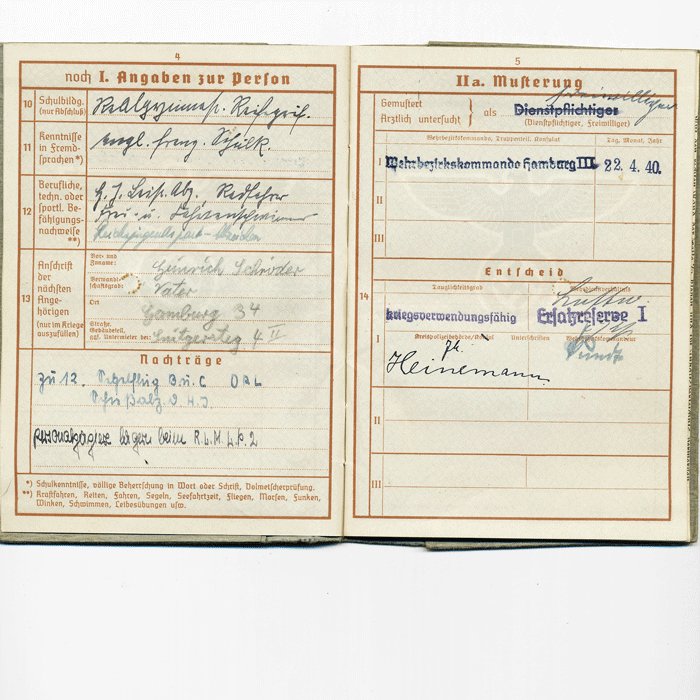 4
noch I. Angaben zur Person
10 Schulbildg. (nur Abschluß) Realgymnas. Reifeprüf.
11 Kenntnisse in Fremdsprachen*) engl. franz. Schulk.
12 Berufliche, techn. oder sportl. Befähigungsnachweise **)
H. J. Leist. Abz. Radfahrer
Frei- u. Fahrtenschwimmer
Reichsjugendsport-Abzeichen
13 Anschrift der nächsten Angehörigen (nur im Kriege auszufüllen)
Vor- und Zuname: Heinrich Schröder
Verwandtschaftsgrad: Vater
Ort Hamburg 34
Straße, Gebäudeteil, ggf. Untermieter bei: 4 II
Nachträge
zu 12. Segelflug B u. C
Schußabz. d. H. J.
Personalpapiere liegen beim R.L.M. L.P. 2
*) Schulkenntnisse, völlige Beherrschung in Wort oder Schrift, Dolmetscherprüfung.
**) Kraftfahren, Reiten, Fahren, Segeln, Seefahrtzeit, Fliegen, Morsen, Funken,
Winken, Schwimmen, Leibesübungen usw.
5
IIa. Musterung
Freiwilliger
Gemustert
Ärztlich untersucht } als Dienstpflichtiger
(Dienstpflichtiger, Freiwilliger)
Wehrbezirkskommando, Truppenteil, Konsulat Tag, Monat, Jahr
I Wehrbezirkskommando Hamburg III 22. 4. 40.
II
III
Entscheid
14 Tauglichkeitsgrad Wehrdienstverhältnis
Luftw.
kriegsverwendungsfähig Ersatzreserve I
I Kreispolizeibehörde/Konsul Unterschriften
Heinemann
II
III